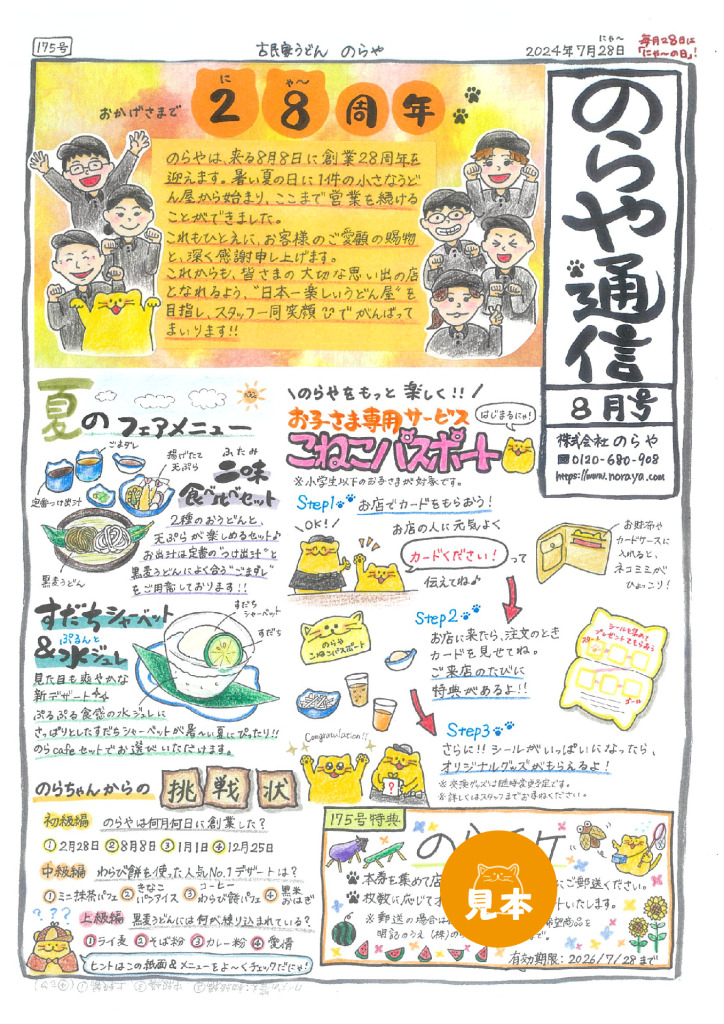 175号
古民家うどん のらや
にゃ〜
2024年7月28日
毎月28日は
「にゃ〜の日」!
のらや通信
8月号
株式会社のらや
0120-680-908
https://www.noraya.com
おかげさまで
に ゃ〜
28周年
のらやは、来る8月8日に創業28周年を
迎えます。暑い夏の日に1件の小さなうど
ん屋から始まり、ここまで営業を続ける
ことができました。
これもひとえに、お客様のご愛顧の賜物
と、深く感謝申し上げます。
これからも、皆さまの大切な思い出の店
となれるよう、"日本一楽しいうどん屋"を
目指し、スタッフ一同笑顔でがんばって
まいります!!
夏のフェアメニュー
ごまダレ
揚げたて
天ぷら
定番つけ出汁
黒麦うどん
ふたみ
二味
食べ比べセット
2種のおうどんと、
天ぷらが楽しめるセット♪
お出汁は定番の"つけ出汁"と
黒麦うどんによく合う"ごまダレ"
をご用意しております!!
すだちシャーベット
ぷるんと
&水ジュレ
すだち
シャーベット
すだち
見た目も爽やかな
新デザート
ぷるぷる食感の水ジュレに
さっぱりとしたすだちシャーベットが暑〜い夏にぴったり!!
のらcafeセットでお選びいただけます。
\のらやをもっと楽しく!!/
お子さま専用サービス
はじまるにゃ!
こねこパスポート
※小学生以下のお子さまが対象です。
Step1 お店でカードをもらおう!
\OK!/
お店の人に元気よく
カードください!って
伝えてね♪
お財布や
カードケースに
入れると、
ネコミミが
ひょっこり!
のらや
こねこパスポート
Step2
お店に来たら、注文のとき
カードを見せてね。
ご来店のたびに
特典があるよ!!
シールを集めて
プレゼントをもらおう
スタート
ゴール
Congratulation!!
Step3
さらに!!シールがいっぱいになったら、
オリジナルグッズがもらえるよ!
※交換グッズは随時変更予定です。
※詳しくはスタッフまでお尋ねください。
のらちゃんからの挑戦状
初級編 のらやは何月何日に創業した?
①2月28日 ②8月8日 ③1月1日 ④12月25日
中級編 わらび餅を使った人気No.1デザートは?
①ミニ抹茶パフェ ②きなこパフアイス ③コーヒーわらび餅パフェ ④黒米おはぎ
上級編 黒麦うどんには何が練り込まれている?
①ライ麦 ②そば粉 ③カレー粉 ④愛情
???
ヒントはこの紙面&メニューをよ〜くチェックだにゃ!
175号特典
のら
ケ
本券を集めて店
にご郵送ください。
枚数に応じてオ
トいたします。
※郵送の場合は
希望商品を
明記のうえ(株)の
まで。
見本
有効期限:2026/7/28まで